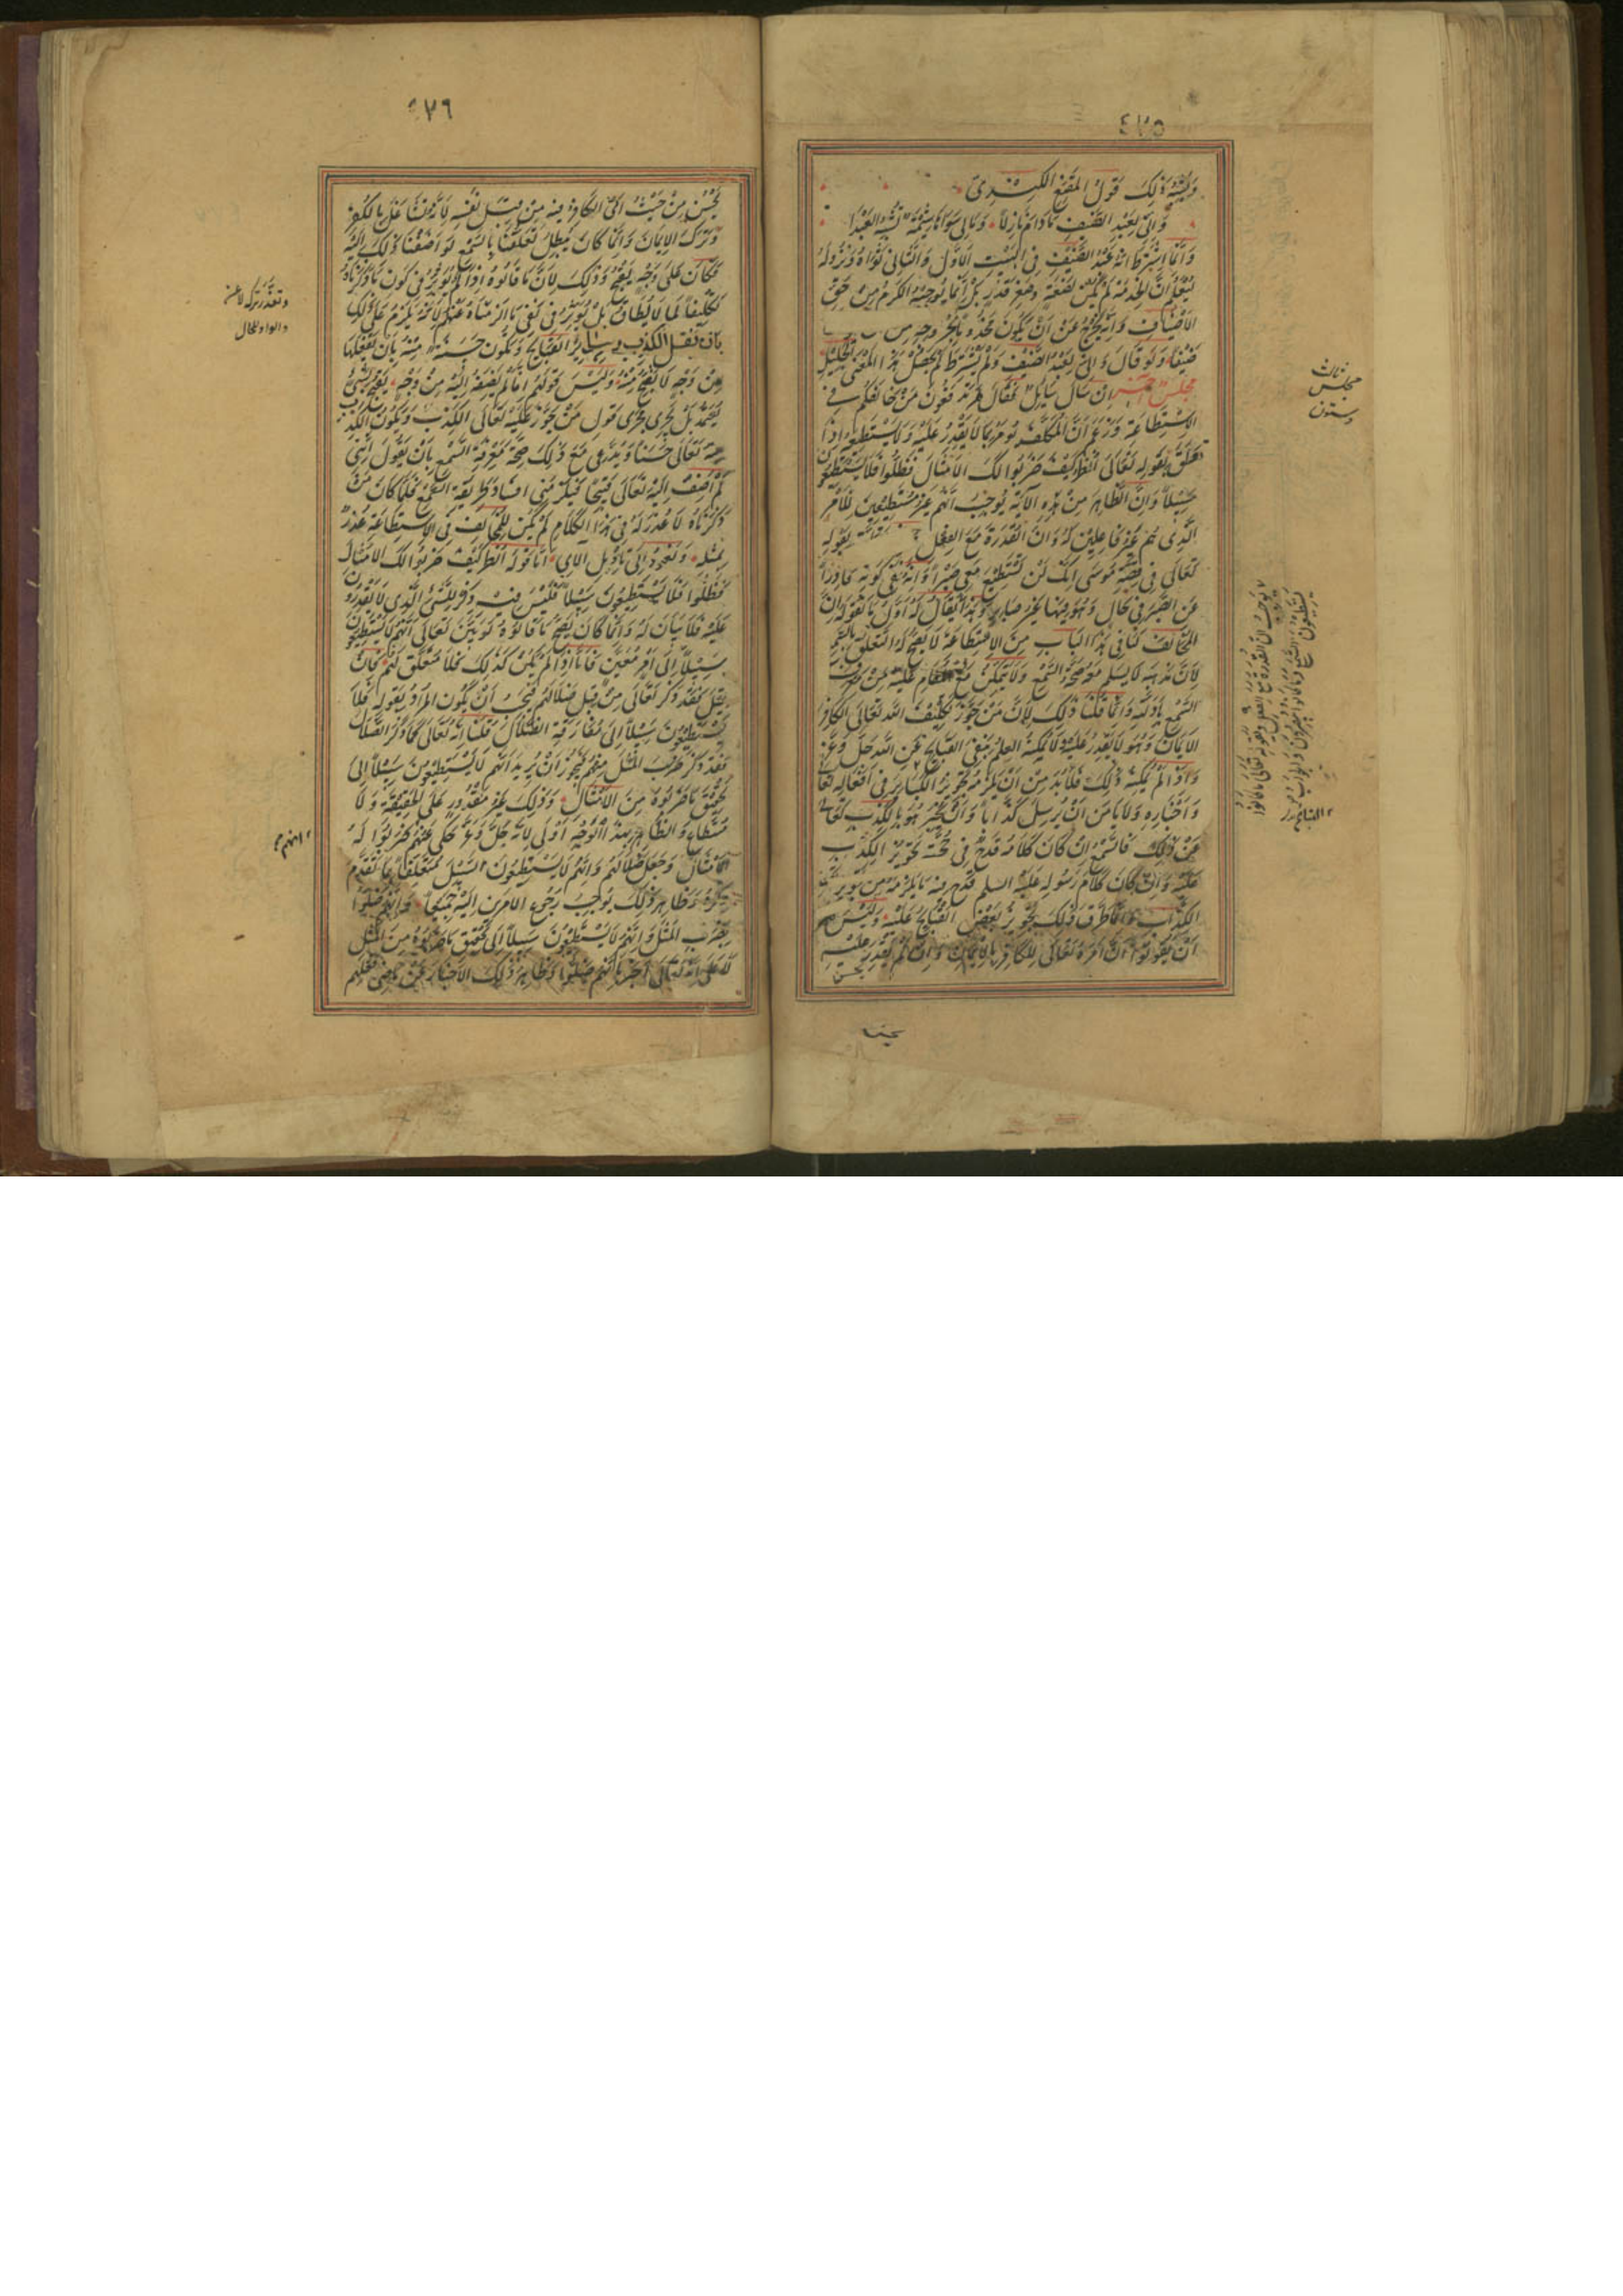 ٤٧٥
وَيُشْبِهُ ذٰلِكَ قَوْلُ المُقَنَّعِ الكِنْدِيّ
وَاِنّى لَعَبْدُ الضَّيْفِ مَا دَامَ نَازِلاً وَمَا لِى سِوَاهَا شِيْمَةٌ تُشْبِهُ العَبْدَا
وَاِنَّمَا اشْتَرَطَ اَنَّهُ عَبْدُ الضَّيْفِ فِى البَيْتِ الاَوَّلِ وَالثَّانِى ثَوَاهُ وَنُزُولَهُ
لِيُعْلَمَ اَنَّ الخِدْمَةَ لَمْ تَكُنْ لِضَعَةٍ وَصِغَرِ قَدْرٍ بَلْ اِنَّمَا يُوجِبُهُ الكَرَمُ مِنْ حَقِّ
الاَضْيَافِ وَاَنَّهُ يَخْرُجُ عَنْ اَنْ يَكُونَ مَخْدُومًا بِخُرُوجِهِ مِنْ
ضَيْفًا وَلَوْ قَالَ وَاِنّى لَعَبْدُ الضَّيْفِ وَلَمْ يَشْتَرِطْ لَمْ يَحْصُلْ هٰذَا المَعْنَى
مَجْلِسٌ آخَر اِنْ سَالَ سَايِلٌ فَقَالَ مَنْ خَالَفَكُم فى
الاِسْتِطَاعَةِ وَزَعَمَ اَنَّ المُكَلَّفَ يُؤْمَرُ بِمَا لَا يَقْدِرُ عَلَيْهِ وَلَا يَسْتَطِيْعُهُ اِذَا
تَعَلَّقَ بِقَوْلِهِ تَعَالَى اُنْظُرْ كَيْفَ ضَرَبُوا لَكَ الاَمْثَالَ فَضَلُّوا فَلَا يَسْتَطِيْعُونَ
سَبِيْلاً وَاِنَّ الظَّاهِرَ مِنْ هٰذِهِ الآيَةِ يُوجِبُ اَنَّهُم غَيْرُ مُسْتَطِيْعِيْنَ لِلْاَمْرِ
الَّذِى هُم غَيْرُ فَاعِلِيْنَ لَهُ وَاَنَّ القُدْرَةَ مَعَ الفِعْلِ بِقَوْلِهِ
تَعَالَى فِى قِصَّةِ مُوسَى اِنَّكَ لَنْ تَسْتَطِيْعَ مَعِىَ صَبْراً وَاَنَّهُ نَفَى كَوْنَهُ قَادِراً
عَنِ الصَّبْرِ فِى حَالٍ وَهُوَ فِيْهَا غَيْرُ صَابِرٍ يُقَالُ لَهُ اَوَّلُ مَا نَقُولُهُ اِنَّ
المُخَالِفَ لَنَا فِى هٰذَا البَابِ مِنَ الاِسْتِطَاعَةِ لَا يَصِحُّ لَهُ التَّعَلُّقُ بِالسَّمْعِ
لِاَنَّ مَذْهَبَهُ لَا يَسْلَمُ مَعَهُ صِحَّةُ السَّمْعِ وَلَا يَتَمَكَّنُ مَعَ المُقَامِ عَلَيْهِ مِنْ مَعْرِفَةِ
السَّمْعِ بِاَدِلَّتِهِ وَاِنَّمَا قُلْنَا ذٰلِكَ لِاَنَّ مَنْ جَوَّزَ تَكْلِيْفَ اللهِ تَعَالَى الكَافِرَ
الاِيْمَانَ وَهُوَ لَا يَقْدِرُ عَلَيْهِ لَا يُمْكِنُهُ العِلْمُ بِنَفْىِ القَبَايِحِ عَنِ اللهِ جَلَّ وَعَزَّ
وَاِذَا لَمْ يُمْكِنْهُ ذٰلِكَ فَلَا بُدَّ مِنْ اَنْ يَلْزَمَهُ تَجْوِيْزُ القَبَايِحِ فِى اَفْعَالِهِ تَعَالَى
وَاَخْبَارِهِ وَلَا يَأْمَنَ مِنْ اَنْ يُرْسِلَ كَذَّاباً وَاَنْ يُخْبِرَ هُوَ بِالكَذِبِ تَعَالَى
عَنْ ذٰلِكَ فَالسَّمْعُ اِنْ كَانَ كَلَامَهُ قَدَحَ فِى حُجَّتِهِ تَجْوِيْزُ الكَذِبِ
عَلَيْهِ وَاِنْ كَانَ كَلَامَ رَسُولِهِ عَلَيْهِ السلم قَدَحَ فِيْهِ مَا يَلْزَمُهُ مِنْ تَجْوِيْزِ
الكَذَّابِ وَاِنَّمَا طَرَّقَ ذٰلِكَ تَجْوِيْزُ بَعْضِ القَبَايِحِ عَلَيْهِ وَلَيْسَ لَهُم
اَنْ يَقُولُوا اِنَّ اَمْرَهُ تَعَالَى لِلْكَافِرِ بِالاِيْمَانِ وَاِنْ لَمْ يَقْدِرْ عَلَيْهِ
يحسن
ثالث
مجلس
وستون
٤٧٦
يَحْسُنُ مِنْ حَيْثُ اُتِىَ الكَافِرُ فِيْهِ مِنْ قِبَلِ نَفْسِهِ لِاَنَّهُ تَشَاغَلَ بِالكُفْرِ
وَتَرَكَ الاِيْمَانَ وَاِنَّمَا كَانَ يَبْطُلُ تَعَلُّقُنَا بِالسَّمْعِ لَوْ اَضَفْنَا ذٰلِكَ اِلَيْهِ
فَكَانَ عَلَى وَجْهٍ يَقْبُحُ وَذٰلِكَ لِاَنَّ مَا قَالُوهُ اِذَا لَمْ يُؤَثِّرْ فِى كَوْنِ مَا ذَكَرْنَاهُ
تَكْلِيْفاً لِمَا لَا يُطَاقُ لَمْ يُؤَثِّرْ فِى نَفْىِ مَا اَلْزَمْنَاهُ عَنْهُم لِاَنَّهُ يَلْزَمُ عَلَى ذٰلِكَ
القَبَايِحِ وَيَكُونَ حَسَنَةً مِنْهُ بِاَنْ يَفْعَلَهَا
مِنْ وَجْهٍ لَا يَقْبُحُ مِنْهُ وَلَيْسَ قَوْلُهُم اِنَّا لَمْ نُضِفْهُ اِلَيْهِ مِنْ وَجْهٍ يَقْبُحُ بِشَىْءٍ
يُعْتَمَدُ بَلْ يَجْرِى مَجْرَى قَوْلِ مَنْ جَوَّزَ عَلَيْهِ تَعَالَى الكَذِبَ وَيَكُونُ الكَذِبُ
مِنْهُ تَعَالَى حَسَنًا وَيَدَّعِى مَعَ ذٰلِكَ صِحَّةَ مَعْرِفَةِ السَّمْعِ بِاَنْ يَقُولَ اِنَّنِى
لَمْ اُضِفْ اِلَيْهِ تَعَالَى قَبِيْحًا فَيَلْزَمَنِى اِفْسَادُ طَرِيْقَةِ السَّمْعِ فَلَمَّا كَانَ مَنْ
ذَكَرْنَاهُ لَا عُذْرَ لَهُ فِى هٰذَا الكَلَامِ لَمْ يَكُنْ لِلْمُخَالِفِ فِى الاِسْتِطَاعَةِ عُذْرٌ
بِمِثْلِهِ وَنَعُودُ اِلَى تَاْوِيْلِ الآىِ اَمَّا قَوْلُهُ انْظُرْ كَيْفَ ضَرَبُوا لَكَ الاَمْثَالَ
فَضَلُّوا فَلَا يَسْتَطِيْعُونَ سَبِيْلاً فَلَيْسَ فِيْهِ ذِكْرٌ لِلشَّىْءِ الَّذِى لَا يَقْدِرُونَ
عَلَيْهِ وَلَا بَيَانَ لَهُ وَاِنَّمَا كَانَ يَصِحُّ مَا قَالُوهُ لَوْ بَيَّنَ تَعَالَى اَنَّهُم لَا يَسْتَطِيْعُونَ
سَبِيْلاً اِلَى اَمْرٍ مُعَيَّنٍ فَاَمَّا اِذَا لَمْ يَكُنْ كَذٰلِكَ فَلَا مُتَعَلَّقَ لَهُم فَاِنْ
قِيْلَ فَقَدْ ذَكَرَ تَعَالَى مِنْ قَبْلُ ضَلَالَهُم فَيَجِبُ اَنْ يَكُونَ المُرَادُ بِقَوْلِهِ فَلَا
يَسْتَطِيْعُونَ سَبِيْلاً اِلَى مُفَارَقَةِ الضَّلَالِ قُلْنَا اِنَّهُ تَعَالَى كَمَا ذَكَرَ الضَّلَالَ
فَقَدْ ذَكَرَ ضَرْبَ المَثَلِ مِنْهُم فَيَجُوزُ اَنْ يُرِيْدَ اَنَّهُم لَا يَسْتَطِيْعُونَ سَبِيْلاً اِلَى
تَحْقِيْقِ مَا ضَرَبُوهُ مِنَ الاَمْثَالِ وَذٰلِكَ غَيْرُ مَقْدُورٍ عَلَى الحَقِيْقَةِ وَلَا
مُسْتَطَاعٍ وَالظَّاهِرُ بِهٰذَا الوَجْهِ اَوْلَى لِاَنَّهُ جَلَّ وَعَزَّ حَكَى عَنْهُم ضَرَبُوا لَهُ
الاَمْثَالَ وَجَعَلَ ضَلَالَهُم وَاِنَّهُم لَا يَسْتَطِيْعُونَ السَّبِيْلَ مُتَعَلِّقًا بِمَا تَقَدَّمَ
ذِكْرُهُ وَظَاهِرُ ذٰلِكَ يُوجِبُ رُجُوعَ الاَمْرَيْنِ اِلَيْهِ جَمِيْعًا وَاَنَّهُم ضَلُّوا
بِضَرْبِ المَثَلِ وَاَنَّهُم لَا يَسْتَطِيْعُونَ سَبِيْلاً اِلَى تَحْقِيْقِ مَا ضَرَبُوهُ مِنَ المَثَلِ
عَلَى اَنَّهُ تَعَالَى اَخْبَرَ بِاَنَّهُم ضَلُّوا وَظَاهِرُ ذٰلِكَ الاَخْبَارُ عَنْ مَاضِى فِعْلِهِم